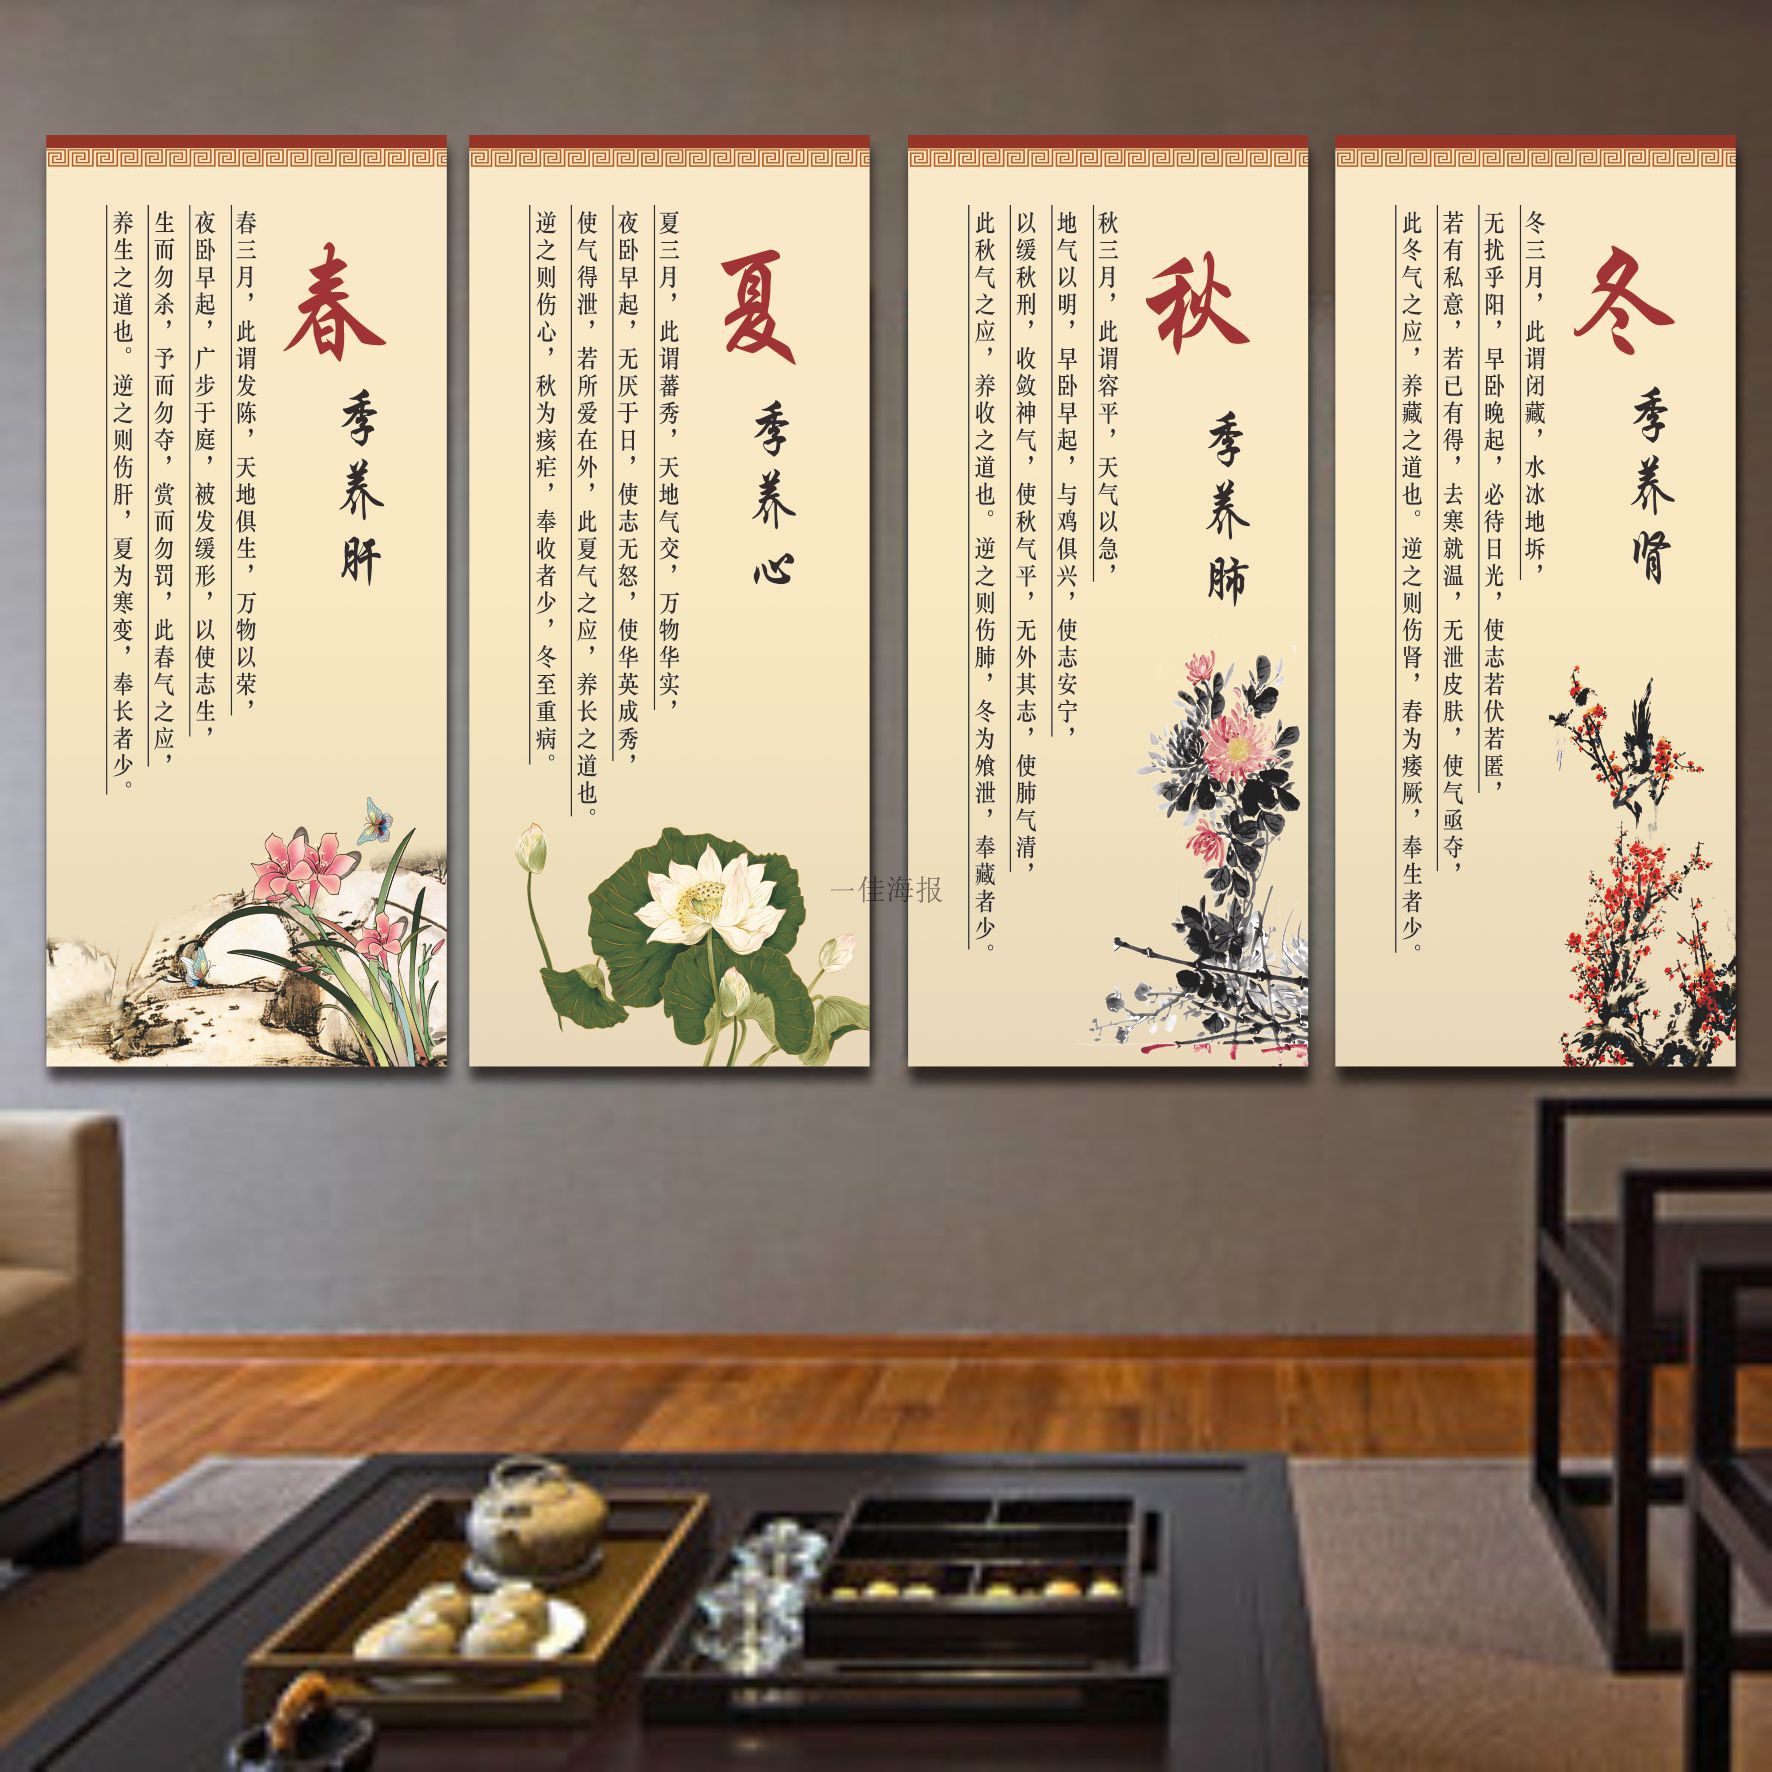 春
季养肝
春三月，此谓发陈，天地俱生，万物以荣，
夜卧早起，广步于庭，被发缓形，以使志生，
生而勿杀，予而勿夺，赏而勿罚，此春气之应，
养生之道也。逆之则伤肝，夏为寒变，奉长者少。
夏
季养心
夏三月，此谓蕃秀，天地气交，万物华实，
夜卧早起，无厌于日，使志无怒，使华英成秀，
使气得泄，若所爱在外，此夏气之应，养长之道也。
逆之则伤心，秋为痎疟，奉收者少，冬至重病。
秋
季养肺
秋三月，此谓容平，天气以急，
地气以明，早卧早起，与鸡俱兴，使志安宁，
以缓秋刑，收敛神气，使秋气平，无外其志，使肺气清，
此秋气之应，养收之道也。逆之则伤肺，冬为飧泄，奉藏者少。
冬
季养肾
冬三月，此谓闭藏，水冰地坼，
无扰乎阳，早卧晚起，必待日光，使志若伏若匿，
若有私意，若已有得，去寒就温，无泄皮肤，使气亟夺，
此冬气之应，养藏之道也。逆之则伤肾，春为痿厥，奉生者少。
一佳海报